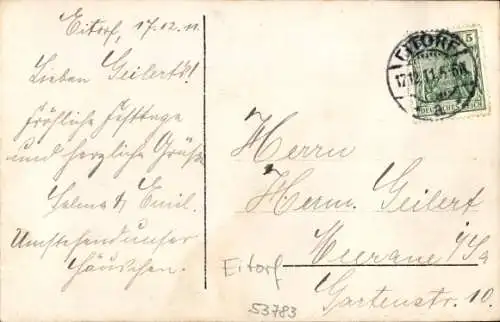 Eitorf, 17.12.11.
Lieben Geilerts!
Fröhliche Festtage
und herzliche Grüße
Selma & Emil.
Umstehend unser
Häuschen.
EITORF
17.12.11. 5-6N
a
5
DEUTSCHES REICH
Herrn
Herm. Geilert
Meerane i/Sa
Gartenstr. 10.
Eitorf
53783